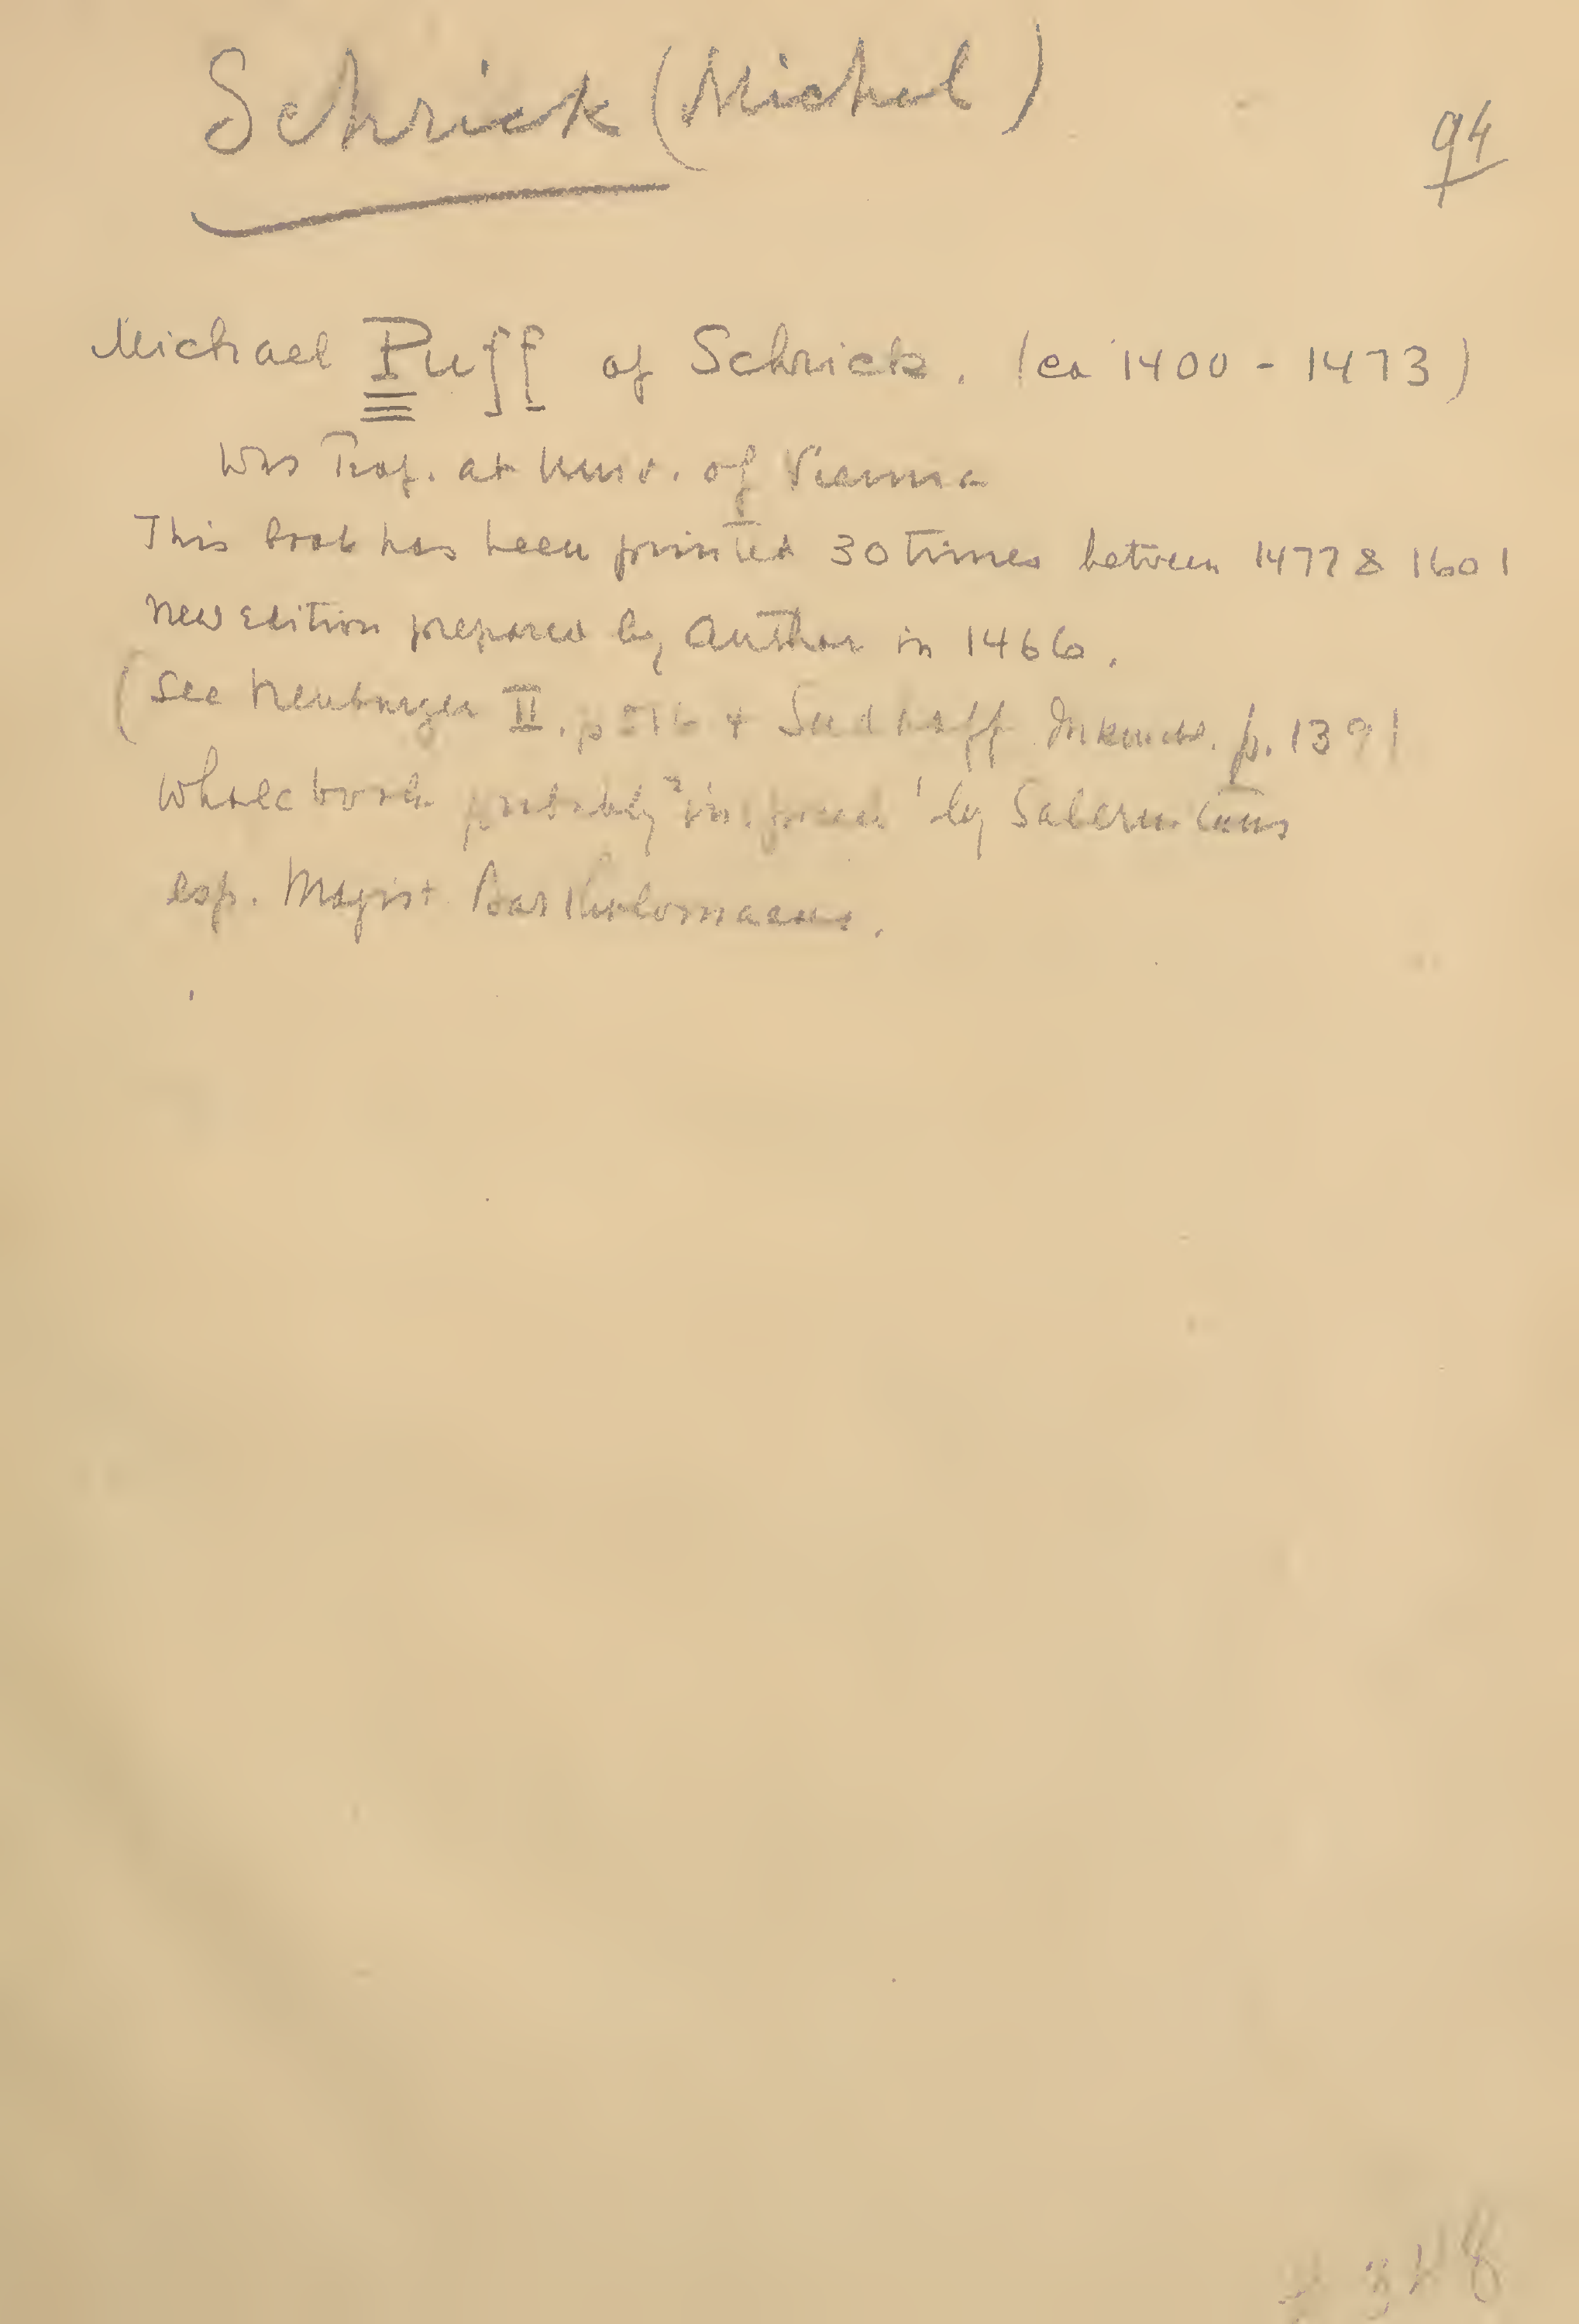 Schrick (Michel)
94
Michael Puff of Schrick. (ca 1400 - 1473)
was Prof. at Univ. of Vienna
This book has been printed 30 times between 1477 & 1601
New edition prepared by Author in 1466.
(See Neuburger II. p 516 + Sudhoff Inkunab. p. 139)
Whole book probably "inspired" by Salernitans
esp. Magist Bartholomaeus.